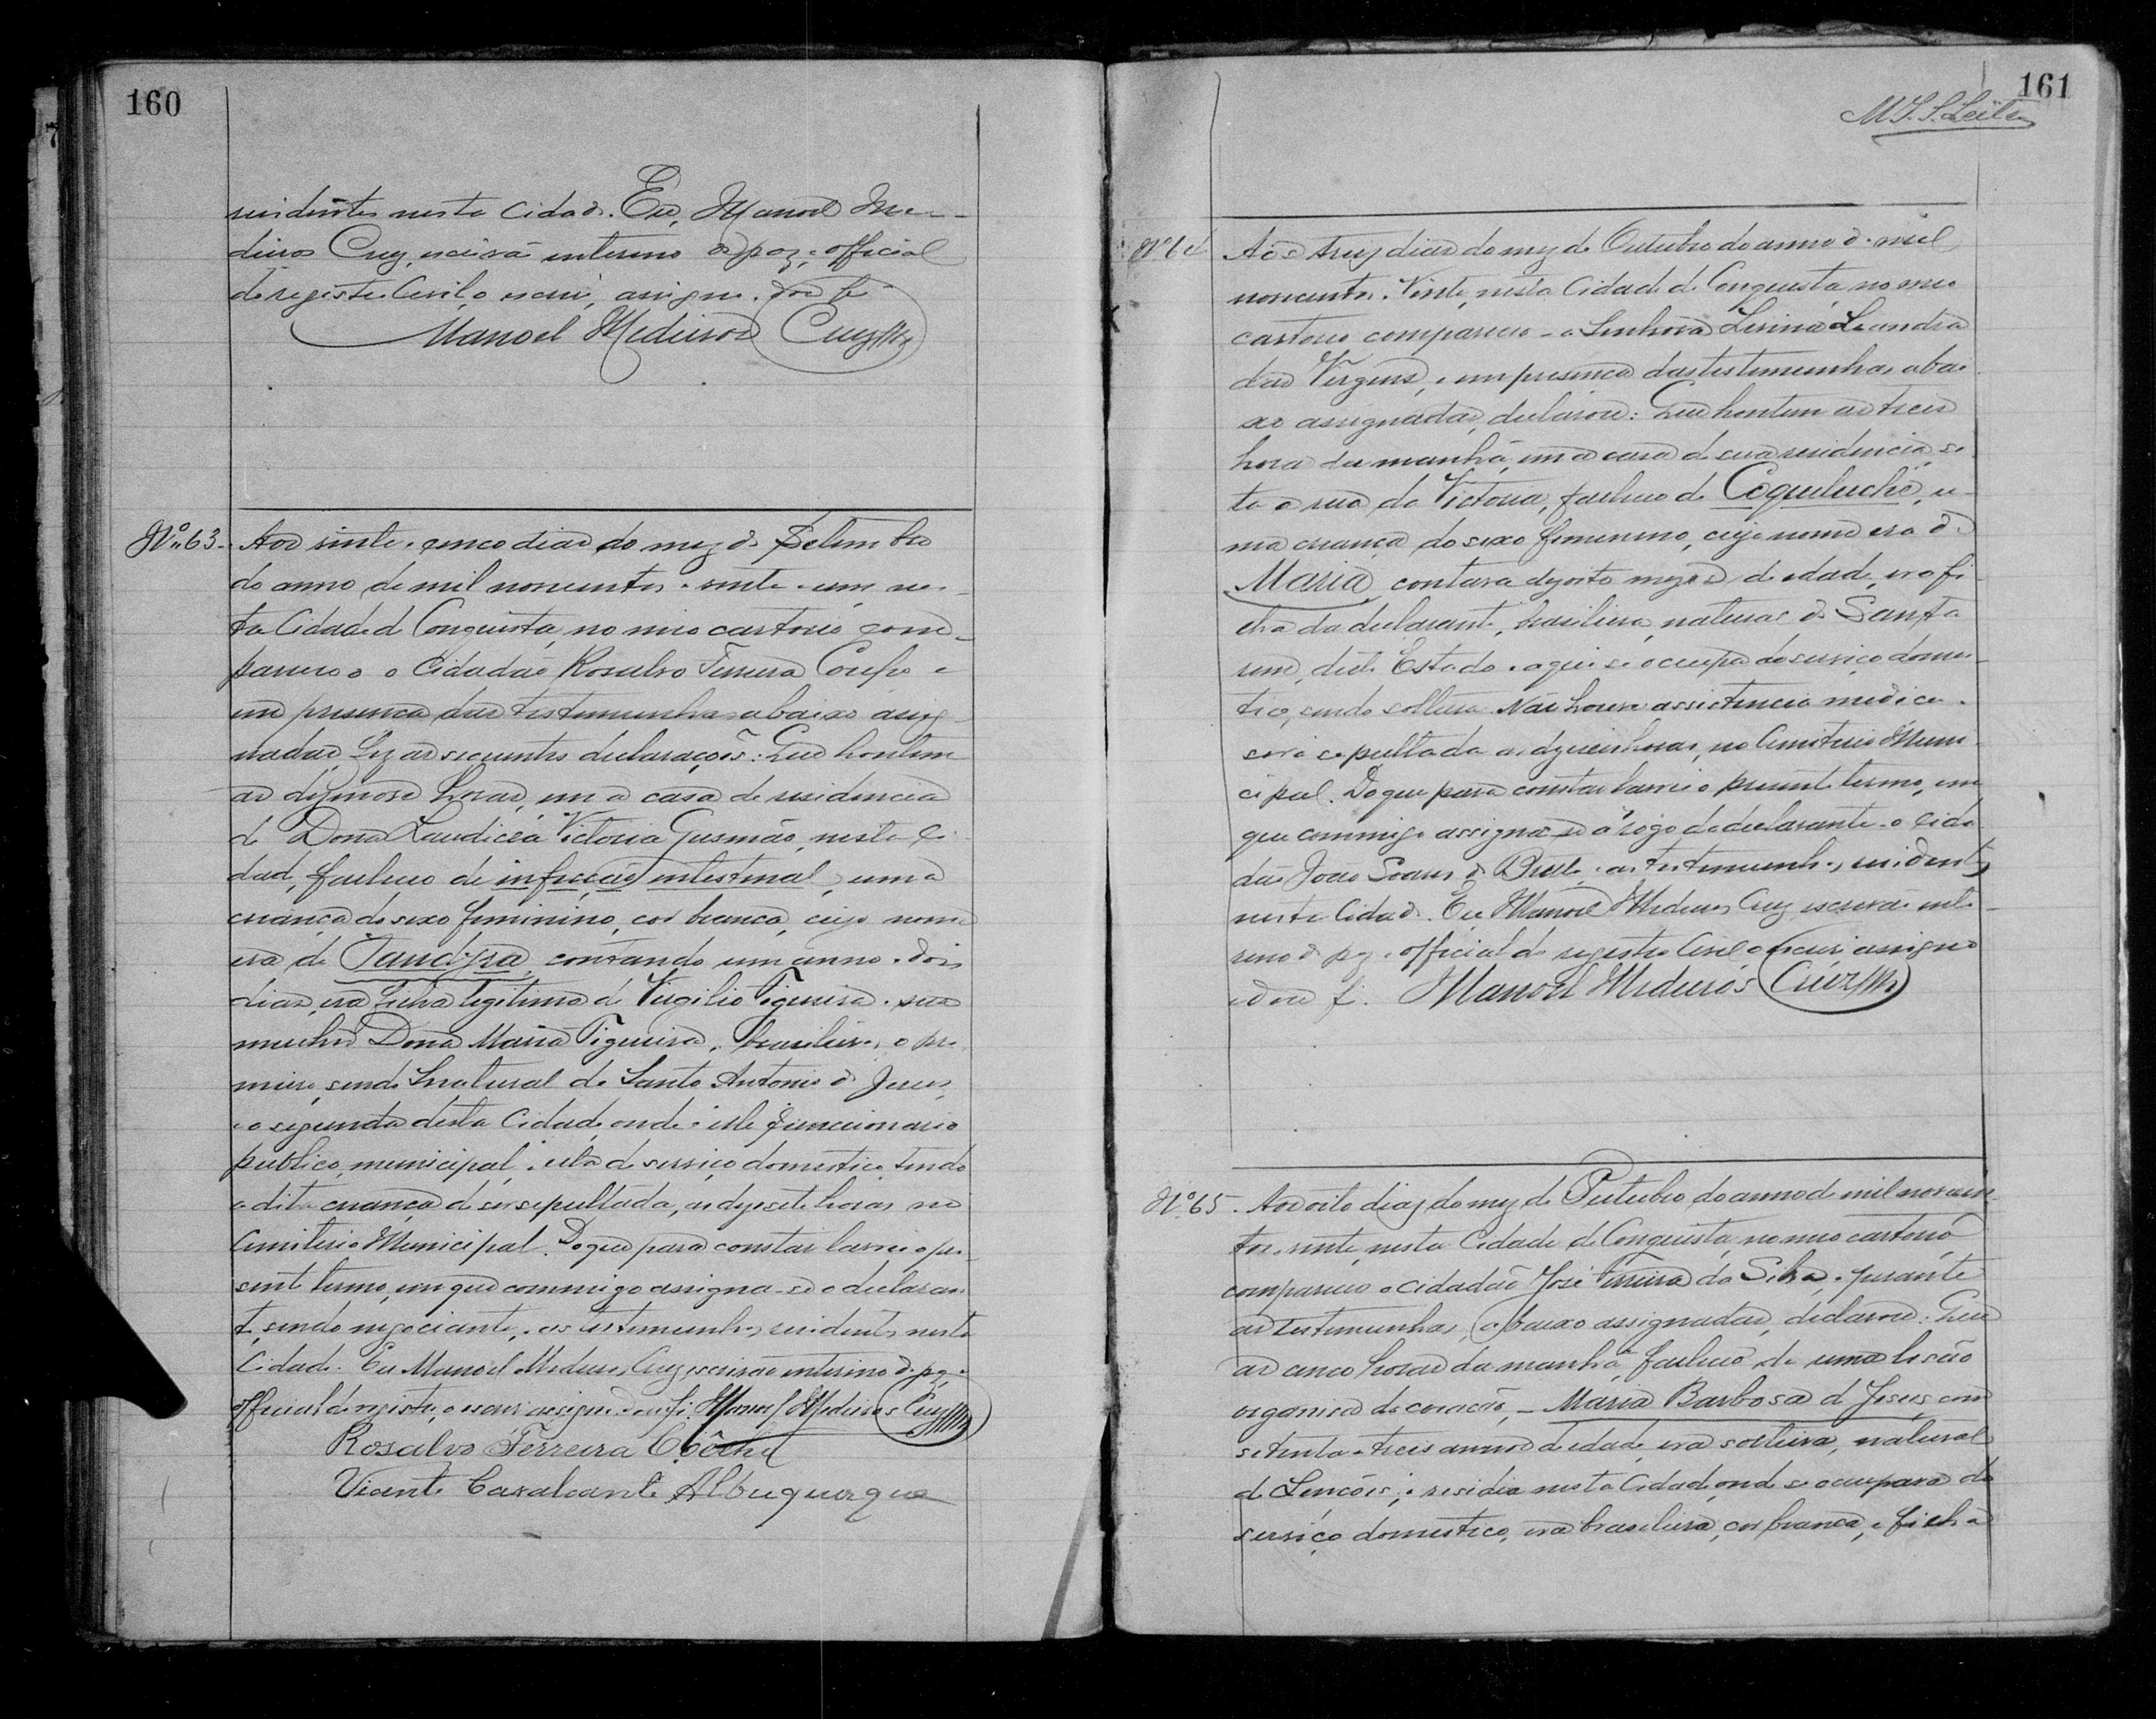 160
residentes nesta Cidade. Eu, Manoel Me-
deiros Cruz, escrivão interino de paz e official
do registro Civil, o escrevi, assigno. dou fé
Manoel Medeiros Cruz
Nº 63. Aos vinte e cinco dias do mez de Setembro
do anno de mil novecentos e vinte e um nes-
ta Cidade de Conquista, no meo cartorio com-
pareceo o Cidadão Rosalvo Ferreira e
em presença das testemunhas abaixo assig-
nadas, fez as seguintes declarações: Que hontem
as dezenove horas, em a casa de residencia
de Dona Laudicéa Victoria Gusmão, nesta Ci-
dade, falleceo de infecção intestinal, uma
creança do sexo feminino, cor branca, cujo nome
era de Jandyra, contando um anno e dois
dias, era filha legitima de Virgilio Figueira e sua
mulher Dona Maria Figueira, brasileiros, o pri-
meiro, sendo natural de Santo Antonio de Jesus,
e a segunda desta Cidade, onde é elle funccionario
publico municipal, e ella de serviço domestico, tendo
a dita creança de ser sepultada, as dezesete horas no
Cemiterio Municipal. Do que para constar lavrei o pre-
sente termo, em que commigo assigna-se o declaran-
te, sendo negociante, e as testemunhas, residentes nesta
Cidade. Eu Manoel Medeiros Cruz escrivão interino de paz e
official do registro, o escrevi assigno dou fé. Manoel Medeiros Cruz
Rosalvo Ferreira
Vicente Cavalcante Albuquerque
161
M.S.S. Leite
Nº 64 Aos trez dias do mez de Outubro do anno de mil
novecentos e vinte, nesta Cidade de Conquista, no meo
cartorio compareceo a Senhora Leandra
das Virgens, e em presença das testemunhas abai-
xo assignadas, declarou: Que hontem as treis
horas da manhã, em a casa de sua residencia, si-
ta a rua da Victoria, falleceo de Coqueluche, u-
ma creança do sexo femenino, cujo nome era de
Maria, contava dezoito mezes de edade, era fi-
lha da declarante, brasileira, natural de Santa-
rem, deste Estado e aqui se occupa do serviço domes-
tico, sendo solteira. Não houve assistencia medica e
será sepultada as dezeseis horas, no Cemiterio Muni-
cipal. Do que para constar lavrei o presente termo, em
que commigo assigna-se á rogo da declarante o cida-
dão João Soares de e as testemunhas, residentes
nesta Cidade. Eu Manoel Medeiros Cruz escrivão inte-
rino de paz e official do registro Civil o escrevi assigno
e dou fé. Manoel Medeiros Cruz
Nº 65. Aos oito dias do mez de Outubro do anno de mil novecen-
tos e vinte, nesta Cidade de Conquista, no meo cartorio
compareceo o cidadão José Ferreira da Silva, e perante
as testemunhas, abaixo assignadas, declarou: Que
as cinco horas da manhã falleceo de uma lesão
organica do coração, - Maria Barbosa de Jesus, com
setenta e treis annos de edade, era solteira, natural
de Lençóes, e residia nesta Cidade, onde se occupava do
serviço domestico, era brasileira, cor branca, e filha